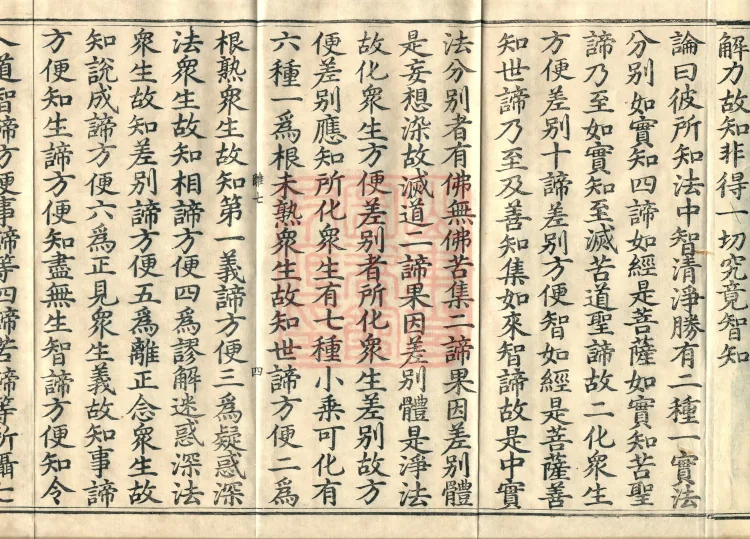 解力故知非得一切究竟智知
論曰彼所知法中智清淨勝有二種一實法
分別如實知四諦如經是菩薩如實知苦聖
諦乃至如實知至滅苦道聖諦故二化衆生
方便差別十諦差別方便智如經是菩薩善
知世諦乃至及善知集如來智諦故是中實
法分別者有佛無佛苦集二諦果因差別體
是妄想染故滅道二諦果因差別體是淨法
故化衆生方便差別者所化衆生差別故方
便差別應知所化衆生有七種小乘可化有
六種一爲根未熟衆生故知世諦方便二爲
離七 四
根熟衆生故知第一義諦方便三爲疑惑深
法衆生故知相諦方便四爲謬解迷惑深法
衆生故知差別諦方便五爲離正念衆生故
知說成諦方便六爲正見衆生義故知事諦
方便知生諦方便知盡無生智諦方便知令
入道智諦方便事諦等四諦苦諦等所攝七